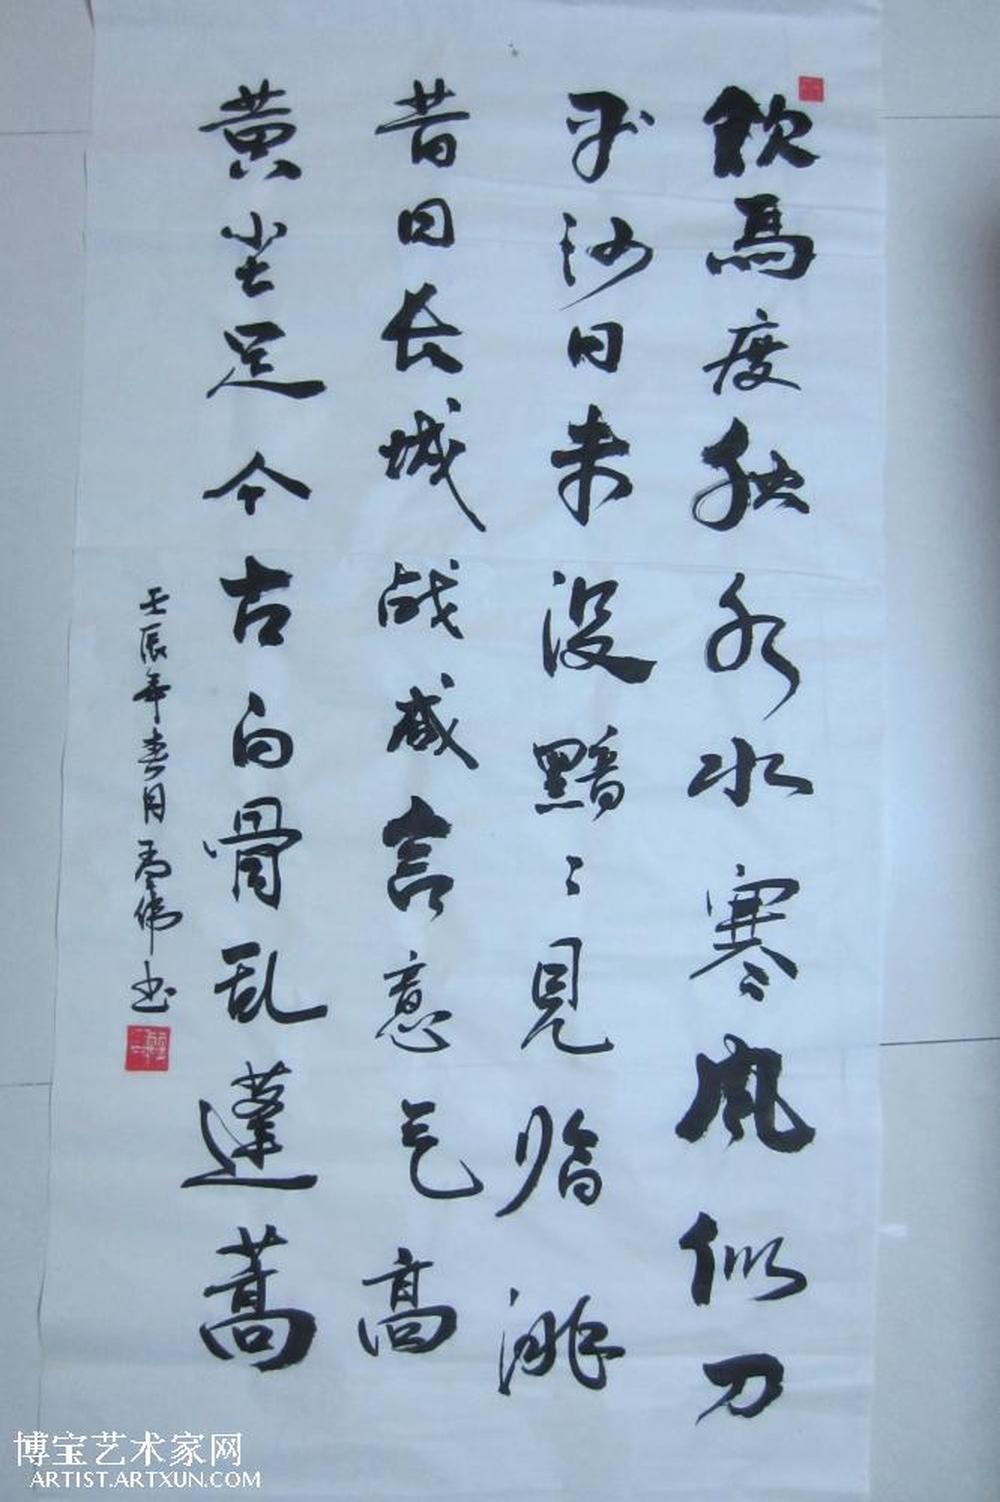 飲馬度秋水水寒风似刀
平沙日未没黯々見临洮
昔日长城战咸言意气高
黄尘足今古白骨乱蓬蒿
壬辰年春月伟书
博宝艺术家网
ARTIST.ARTXUN.COM